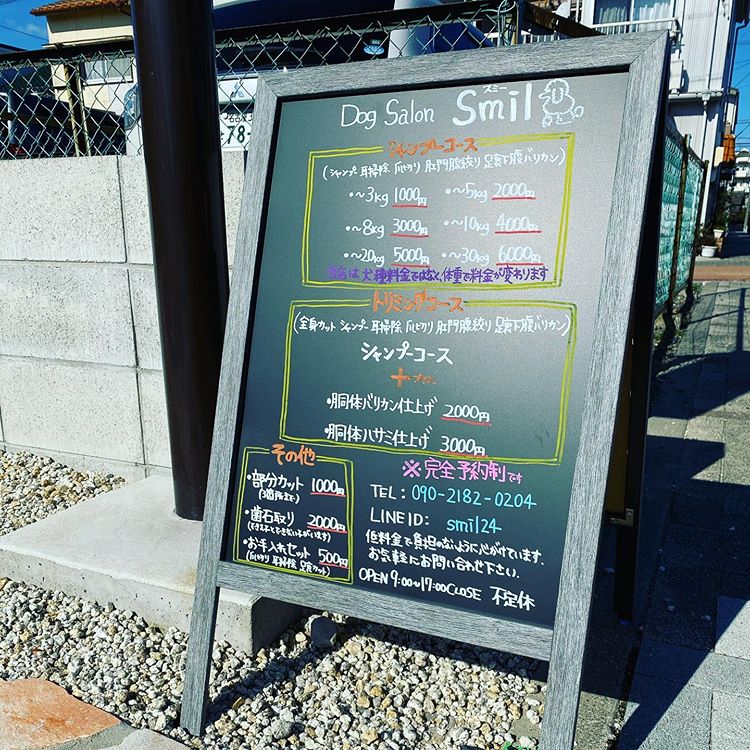 Dog Salon Smil
スミー
シャンプーコース
(シャンプー 耳掃除 爪切り 肛門腺絞り 足裏下腹バリカン)
・〜3kg 1000円 ・〜5kg 2000円
・〜8kg 3000円 ・〜10kg 4000円
・〜20kg 5000円 ・〜30kg 6000円
当店は犬種料金ではなく、体重で料金が変わります
トリミングコース
(全身カット シャンプー 耳掃除 爪切り 肛門腺絞り 足裏下腹バリカン)
シャンプーコース
+プラス
・胴体バリカン仕上げ 2000円
・胴体ハサミ仕上げ 3000円
その他
・部分カット 1000円
(3箇所まで)
・歯石取り 2000円
(できる子とできない子がいます)
・お手入れセット 500円
(爪切り 耳掃除 足裏カット)
※完全予約制です
TEL:090-2182-0204
LINE ID: smil24
低料金で負担のないように心がけています.
お気軽にお問い合わせ下さい.
OPEN 9:00〜17:00 CLOSE 不定休
78